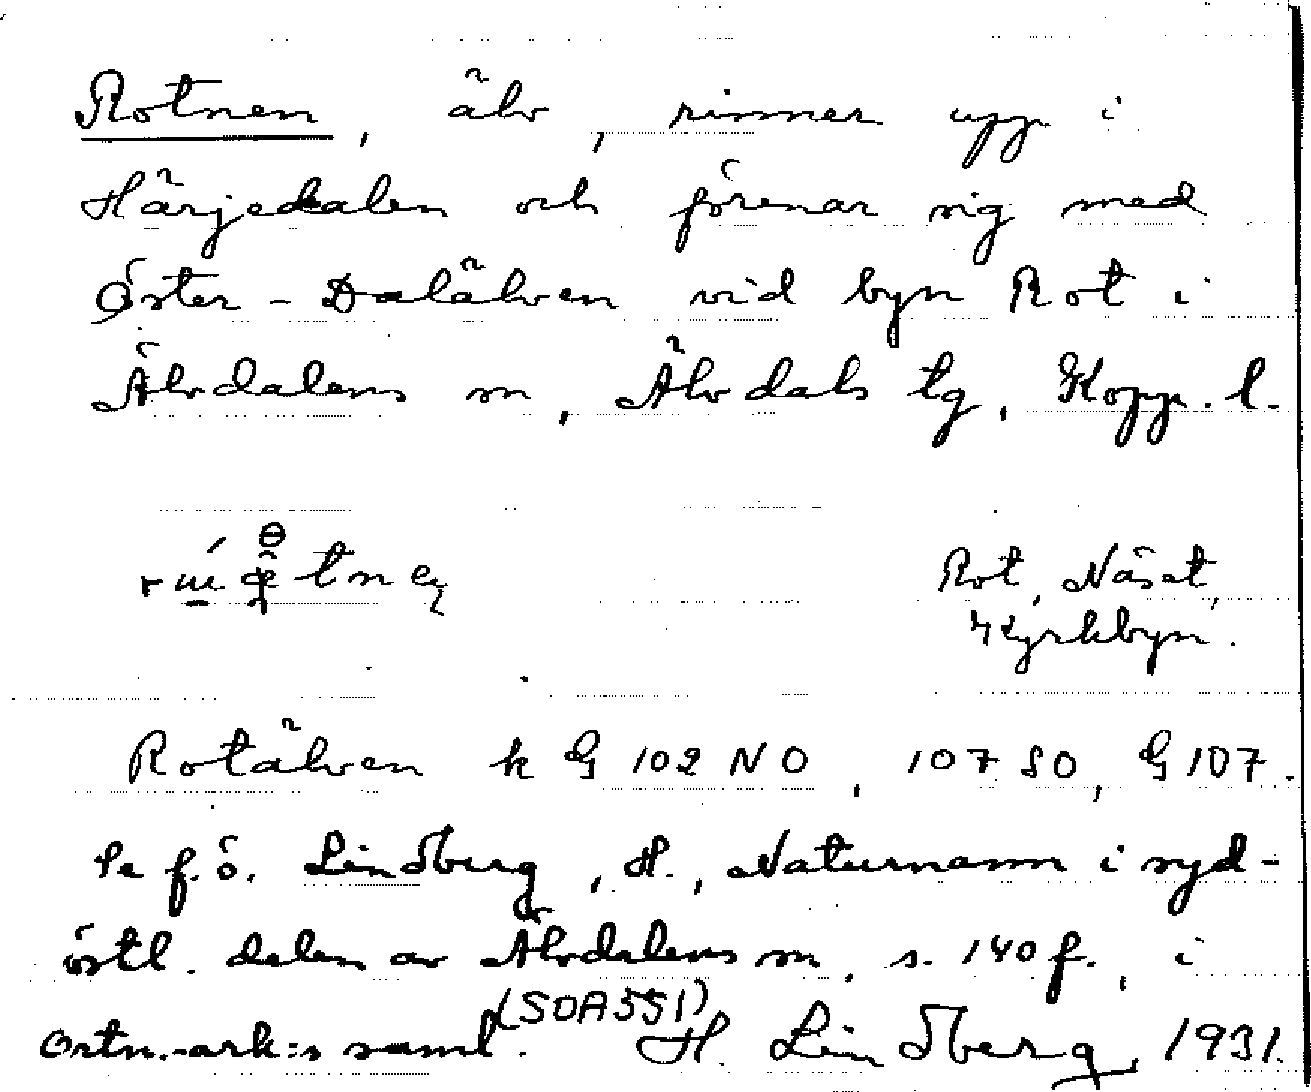 Rotnen, älv, rinner upp i
Härjedalen och förenar sig med
Öster-Dalälven vid byn Rot i
Älvdalens sn, Älvdals tg, Kopp. l.
Rot, Näset,
Kyrkbyn.
Rotälven k G 102 NO, 107 SO, G 107.
Se f.ö. Lindberg, H., Naturnamn i syd-
östl. delen av Älvdalens sn, s. 140 f., i
ortn.-ark:s saml. (SOA 551) H. Lindberg, 1931.